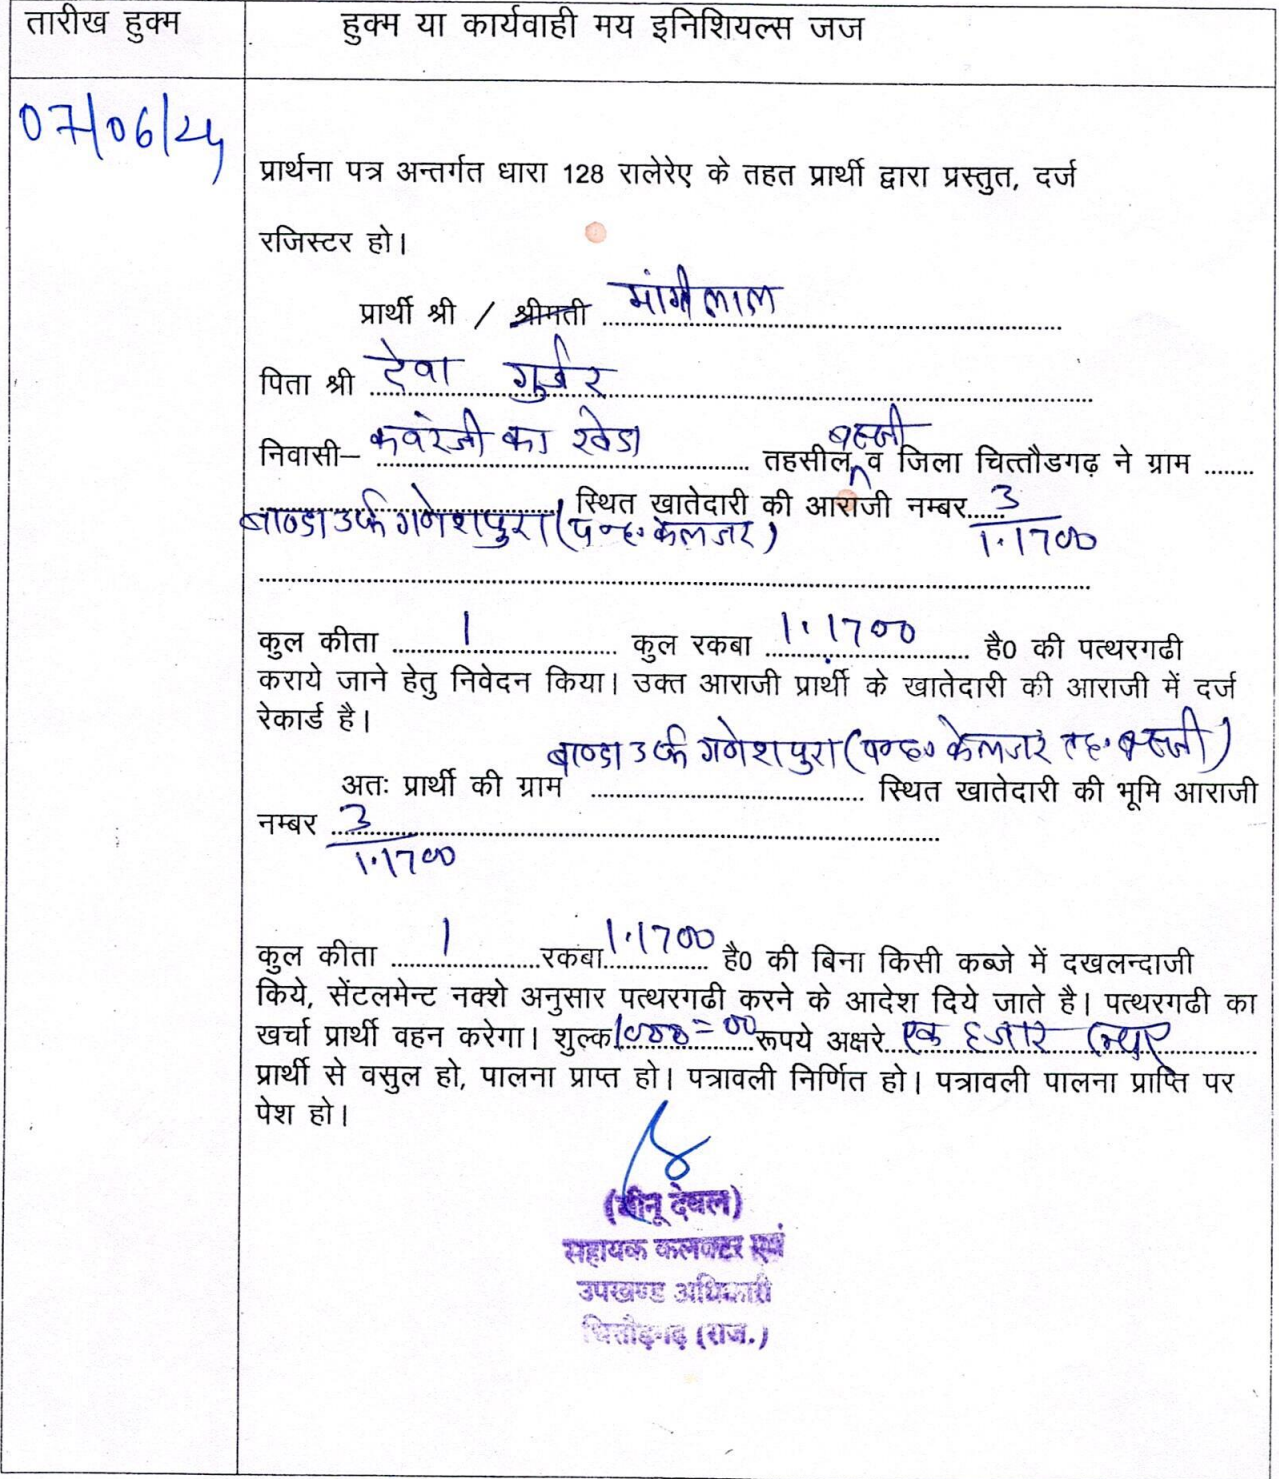 तारीख हुक्म
हुक्म या कार्यवाही मय इनिशियल्स जज
07/06/24
प्रार्थना पत्र अन्तर्गत धारा 128 रालेरेए के तहत प्रार्थी द्वारा प्रस्तुत, दर्ज
रजिस्टर हो।
प्रार्थी श्री / श्रीमती मांगीलाल
पिता श्री देवा गुर्जर
निवासी– कवरजी का खेडा तहसील बस्सी व जिला चित्तौडगढ़ ने ग्राम ........
बाण्डा उर्फ गणेशपुरा (प०ह० केलजर) स्थित खातेदारी की आराजी नम्बर 3
1.1700
कुल कीता 1 कुल रकबा 1.1700 है0 की पत्थरगढी
कराये जाने हेतु निवेदन किया। उक्त आराजी प्रार्थी के खातेदारी की आराजी में दर्ज
रेकार्ड है।
अतः प्रार्थी की ग्राम बाण्डा उर्फ गणेशपुरा (प०ह० केलजर तह. बस्सी) स्थित खातेदारी की भूमि आराजी
नम्बर 3
1.1700
कुल कीता 1 रकबा 1.1700 है0 की बिना किसी कब्जे में दखलन्दाजी
किये, सेंटलमेन्ट नक्शे अनुसार पत्थरगढी करने के आदेश दिये जाते है। पत्थरगढी का
खर्चा प्रार्थी वहन करेगा। शुल्क 1000=00 रूपये अक्षरे एक हजार रूपए
प्रार्थी से वसुल हो, पालना प्राप्त हो। पत्रावली निर्णित हो। पत्रावली पालना प्राप्ति पर
पेश हो।
(बीनू देवल)
सहायक कलक्टर एवं
उपखण्ड अधिकारी
चित्तौड़गढ़ (राज.)